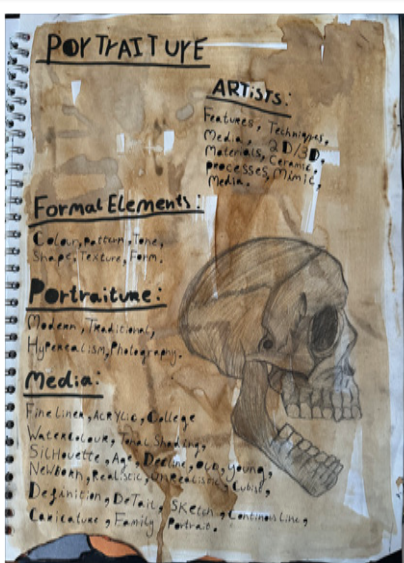 PORTRAITURE
ARTISTS:
Features, Techniques,
Media, 2D/3D,
Materials, Ceramic,
processes, Mimic,
Media.
Formal Elements:
Colour, pattern, Tone,
Shape, Texture, Form.
Portraiture:
Modern, Traditional,
Hyperealism, Photography.
Media:
Fine liner, Acrylic, College
Watercolour, Tonal Shading,
Silhouette, Age, Decline, Old, young,
Newborn, Realistic, Unrealistic, Cubist,
Definition, Detail, Sketch, Continous line,
Caricature, Family Portrait.